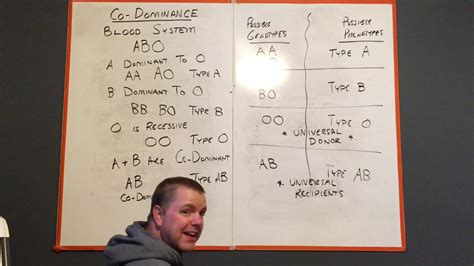 CO-DOMINANCE
BLOOD SYSTEM
ABO
A DOMINANT TO O
AA AO TYPE A
B DOMINANT TO O
BB BO TYPE B
O IS RECESSIVE
OO TYPE O
A + B ARE CO-DOMINANT
AB TYPE AB
CO-DOM
POSSIBLE GENOTYPES
POSSIBLE PHENOTYPES
AA TYPE A
BO TYPE B
OO TYPE O
* UNIVERSAL DONOR *
AB TYPE AB
* UNIVERSAL RECIPIENTS *